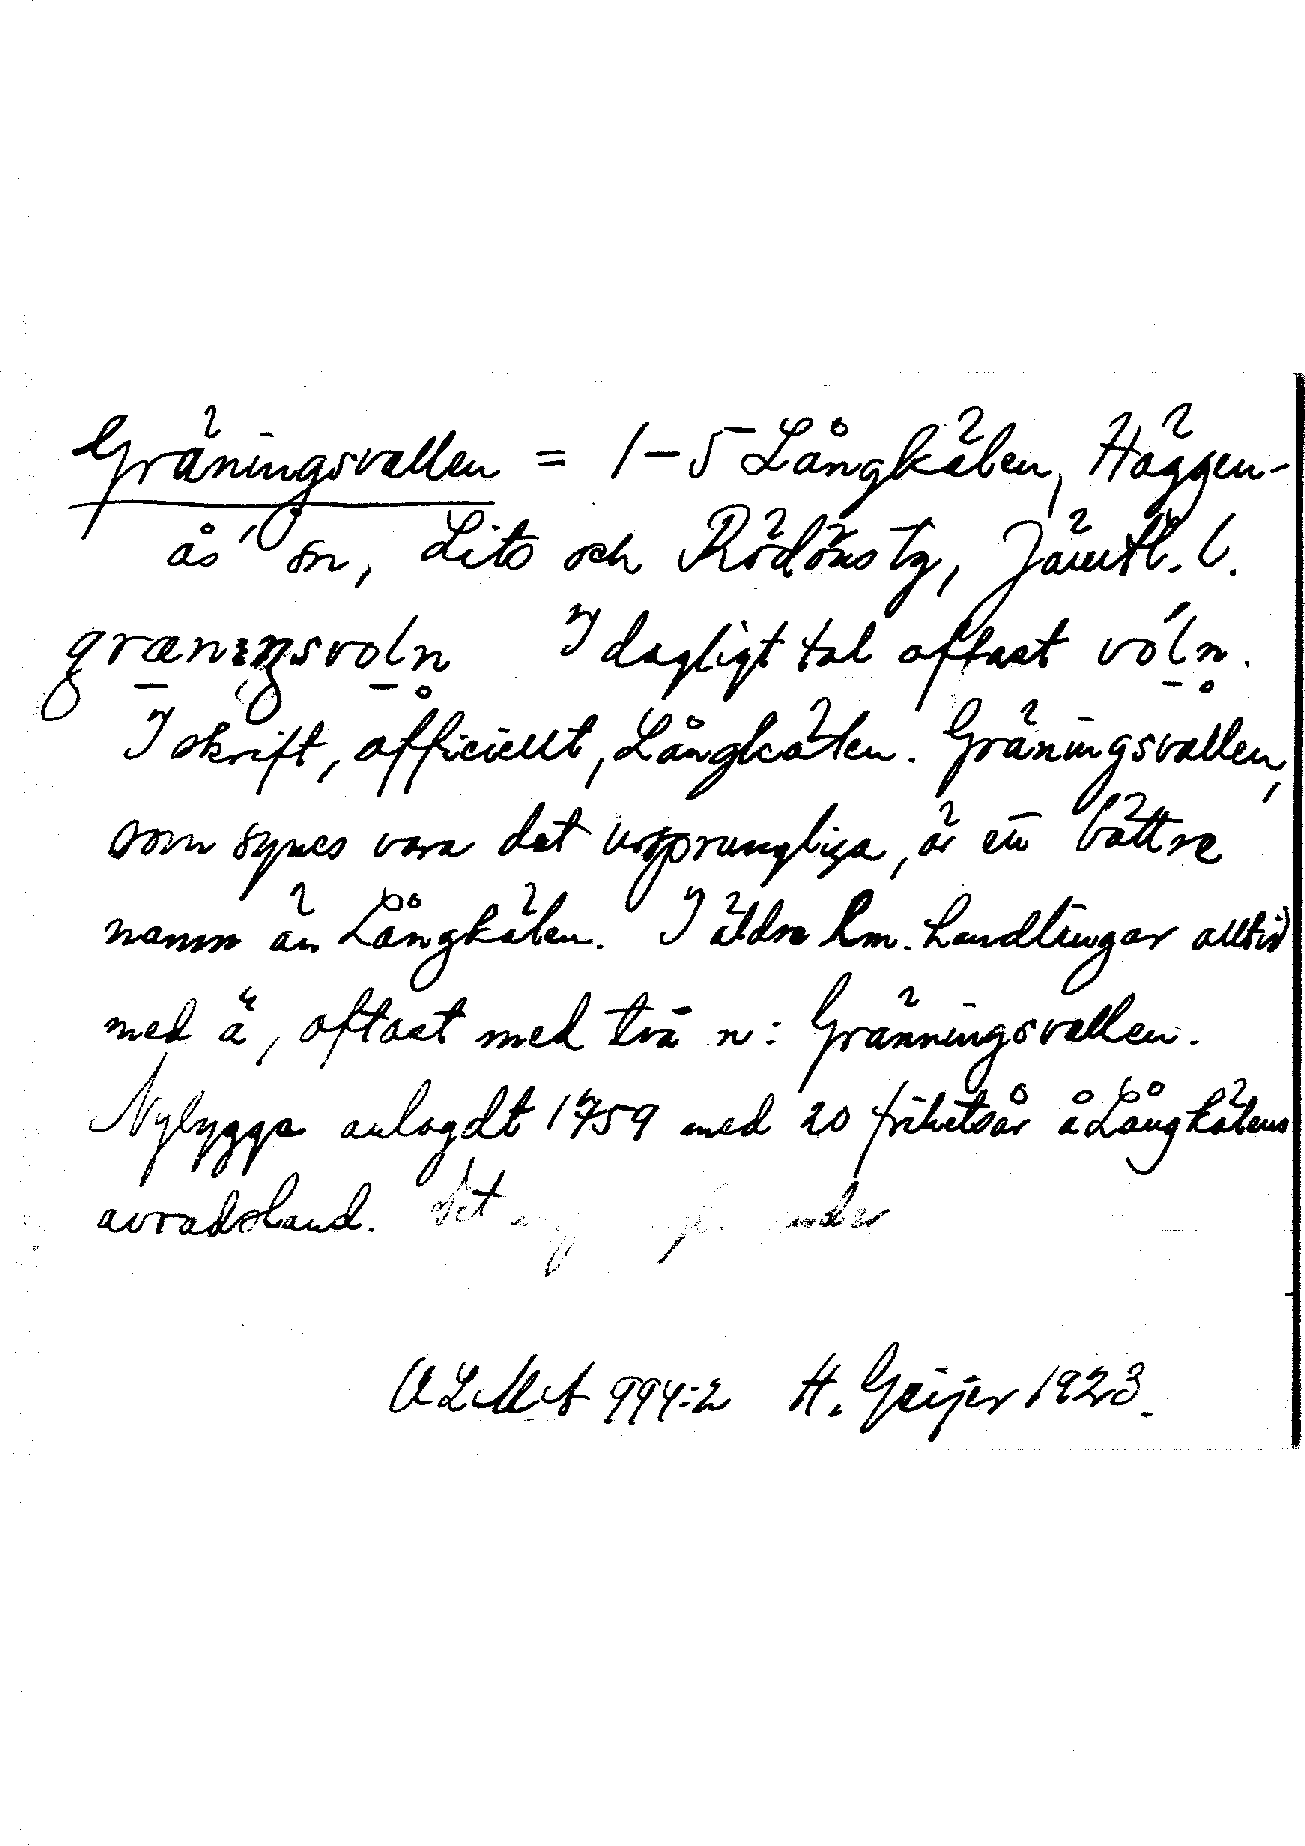 Gräningsvallen = 1–5 Långkälen, Häggen-
ås' sn, Lits och Rödöns tg, Jämtl. l.
græniŋsvoln I dagligt tal oftast vóln.
I skrift, officiellt, Långkälen. Gräningsvallen,
som synes vara det ursprungliga, är ett bättre
namn än Långkälen. I äldre km. handlingar alltid
med ä, oftast med två n: Gränningsvallen.
Nybygge anlagdt 1759 med 20 frihetsår å Långkälens
avradsland. Det
ULMA 994:2 H. Geijer 1923.